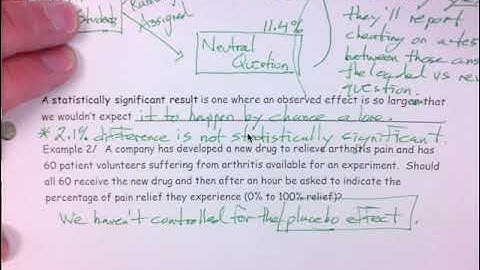 Students
Assigned
11.4%
Neutral
Question
they'll report
cheating on a test
between those
the leaded vs
question.
A statistically significant result is one where an observed effect is so large that
we wouldn't expect it to happen by chance alone.
* 2.1% difference is not statistically significant.
Example 2/ A company has developed a new drug to relieve arthritis pain and has
60 patient volunteers suffering from arthritis available for an experiment. Should
all 60 receive the new drug and then after an hour be asked to indicate the
percentage of pain relief they experience (0% to 100% relief)?
We haven't controlled for the placebo effect.